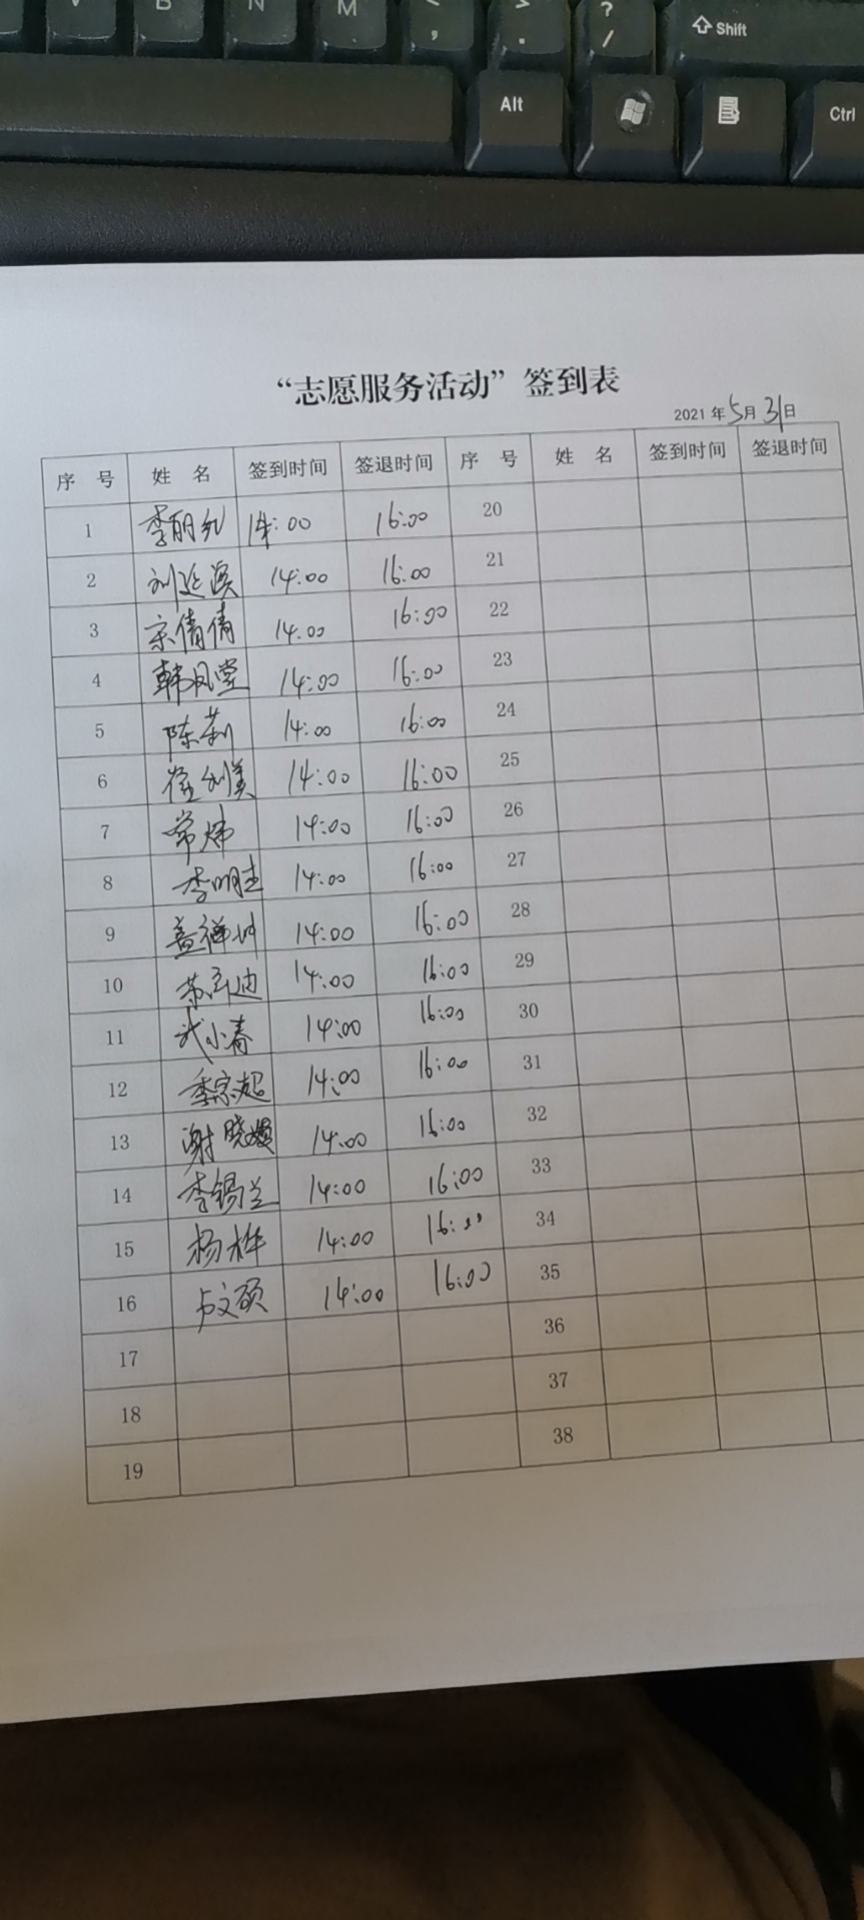 V B N M < , > . ? / Shift
Alt Ctrl
“志愿服务活动”签到表
2021年5月31日
序 号 姓 名 签到时间 签退时间 序 号 姓 名 签到时间 签退时间
1 14:00 16:00 20
2 14:00 16:00 21
3 宋倩倩 14:00 16:00 22
4 14:00 16:00 23
5 陈莉 14:00 16:00 24
6 14:00 16:00 25
7 常炜 14:00 16:00 26
8 李明 14:00 16:00 27
9 14:00 16:00 28
10 14:00 16:00 29
11 武小春 14:00 16:00 30
12 14:00 16:00 31
13 14:00 16:00 32
14 李锡兰 14:00 16:00 33
15 杨桦 14:00 16:00 34
16 14:00 16:00 35
17 36
18 37
19 38